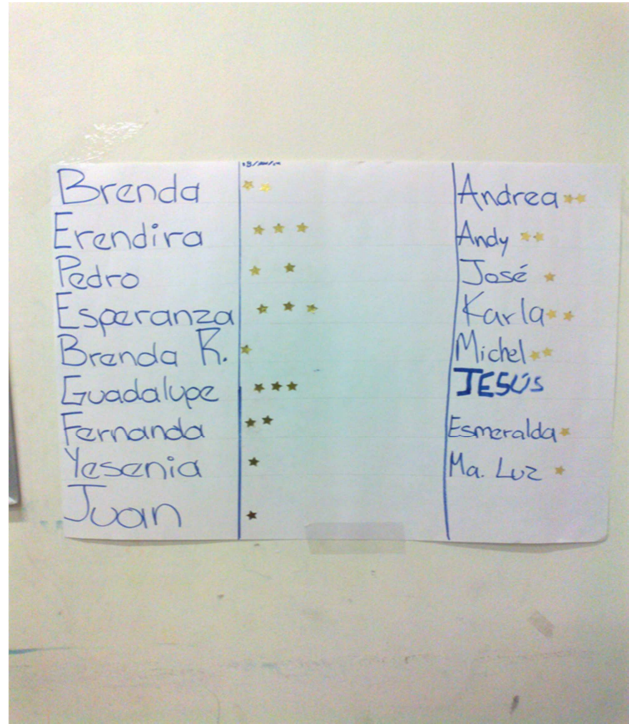 Brenda
Erendira
Pedro
Esperanza
Brenda R.
Guadalupe
Fernanda
Yesenia
Juan
Andrea
Andy
José
Karla
Michel
JESÚS
Esmeralda
Ma. Luz